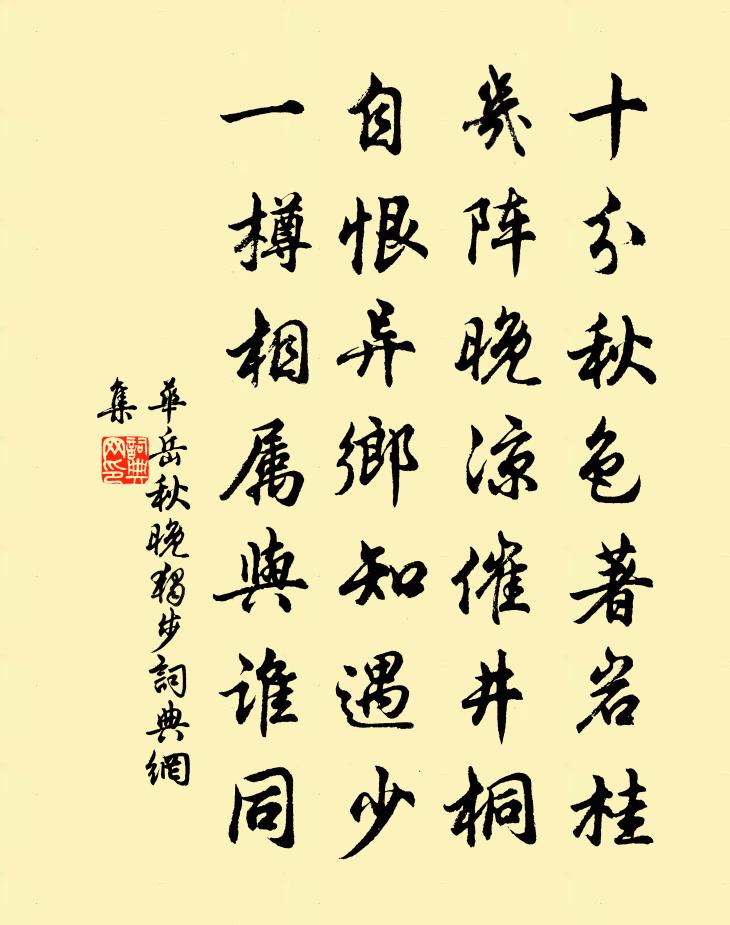 十分秋色著岩桂
几阵晚凉催井桐
自恨异鄉知遇少
一樽相属與谁同
華岳秋晚獨步詞典網
集
詞典
网印